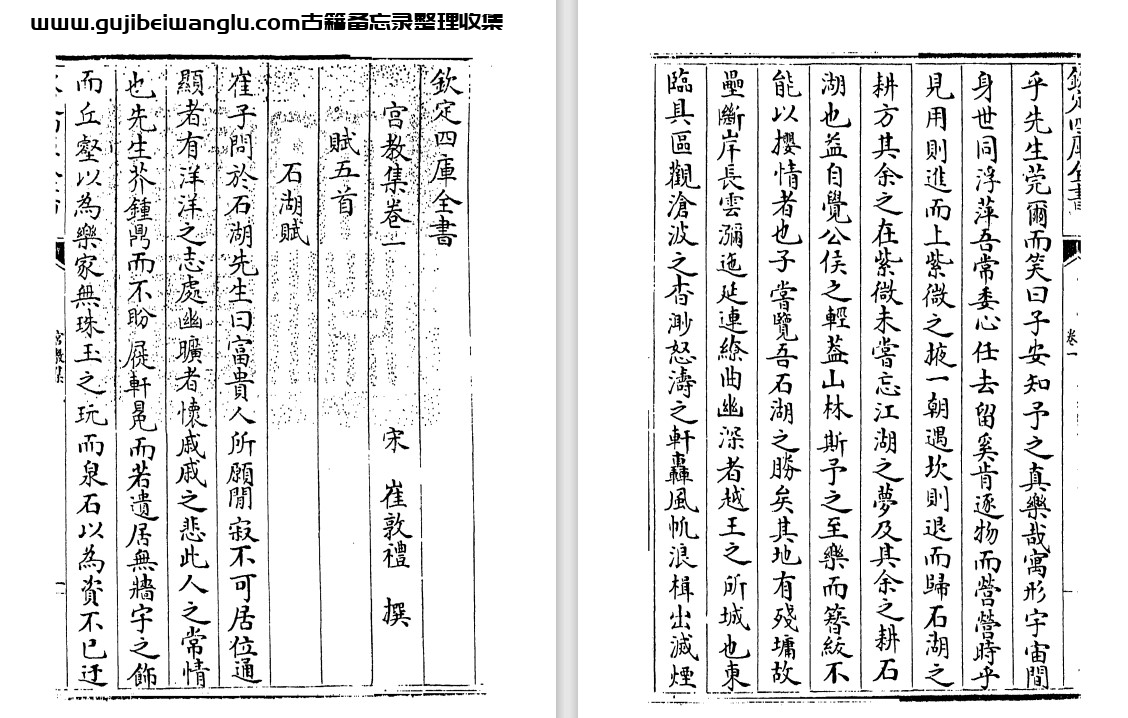 www.gujibeiwanglu.com古籍备忘录整理收集
欽定四庫全書
宮教集卷一
宋 崔敦禮 撰
賦五首
石湖賦
崔子問於石湖先生曰富貴人所願閒寂不可居位通
顯者有洋洋之志處幽曠者懷戚戚之悲此人之常情
也先生芥鍾鼎而不盼屣軒冕而若遺居無牆宇之飾
而丘壑以為樂家無珠玉之玩而泉石以為資不已迂
宮教集
一
欽定四庫全書
卷一
乎先生莞爾而笑曰子安知予之真樂哉寓形宇宙間
身世同浮萍吾常委心任去留奚肯逐物而營營時乎
見用則進而上紫微之掖一朝遇坎則退而歸石湖之
耕方其余之在紫微未嘗忘江湖之夢及其余之耕石
湖也益自覺公侯之輕葢山林斯予之至樂而簪紱不
能以攖情者也子嘗覽吾石湖之勝矣其地有殘墉故
壘斷岸長雲瀰迤延連繚曲幽深者越王之所城也東
臨具區觀滄波之杳渺怒濤之軒轟風帆浪楫出滅煙